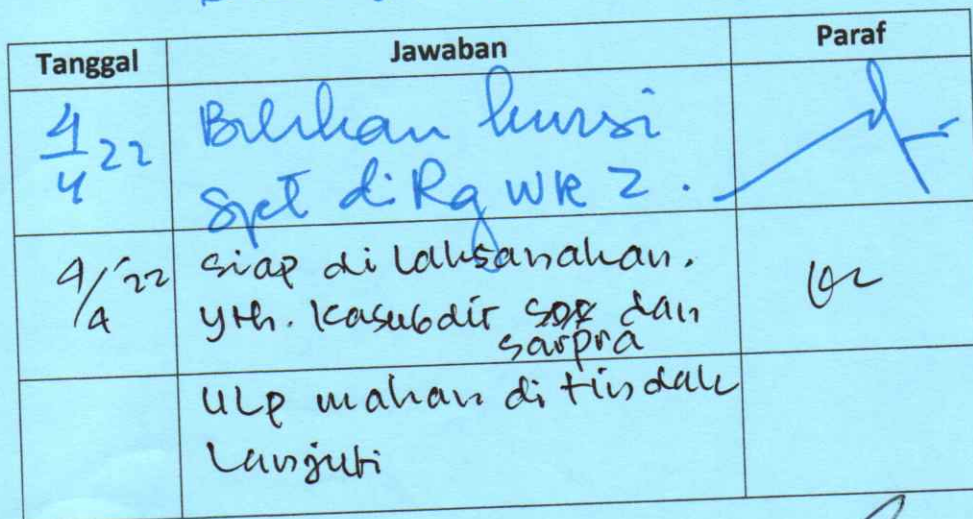 Tanggal Jawaban Paraf
4/4 22 Belikan kursi
spt di Rg WK 2.
4/4 '22 siap di laksanakan.
yth. Kasubdir dan
sarpra
ULP mohon di tindak
lanjuti